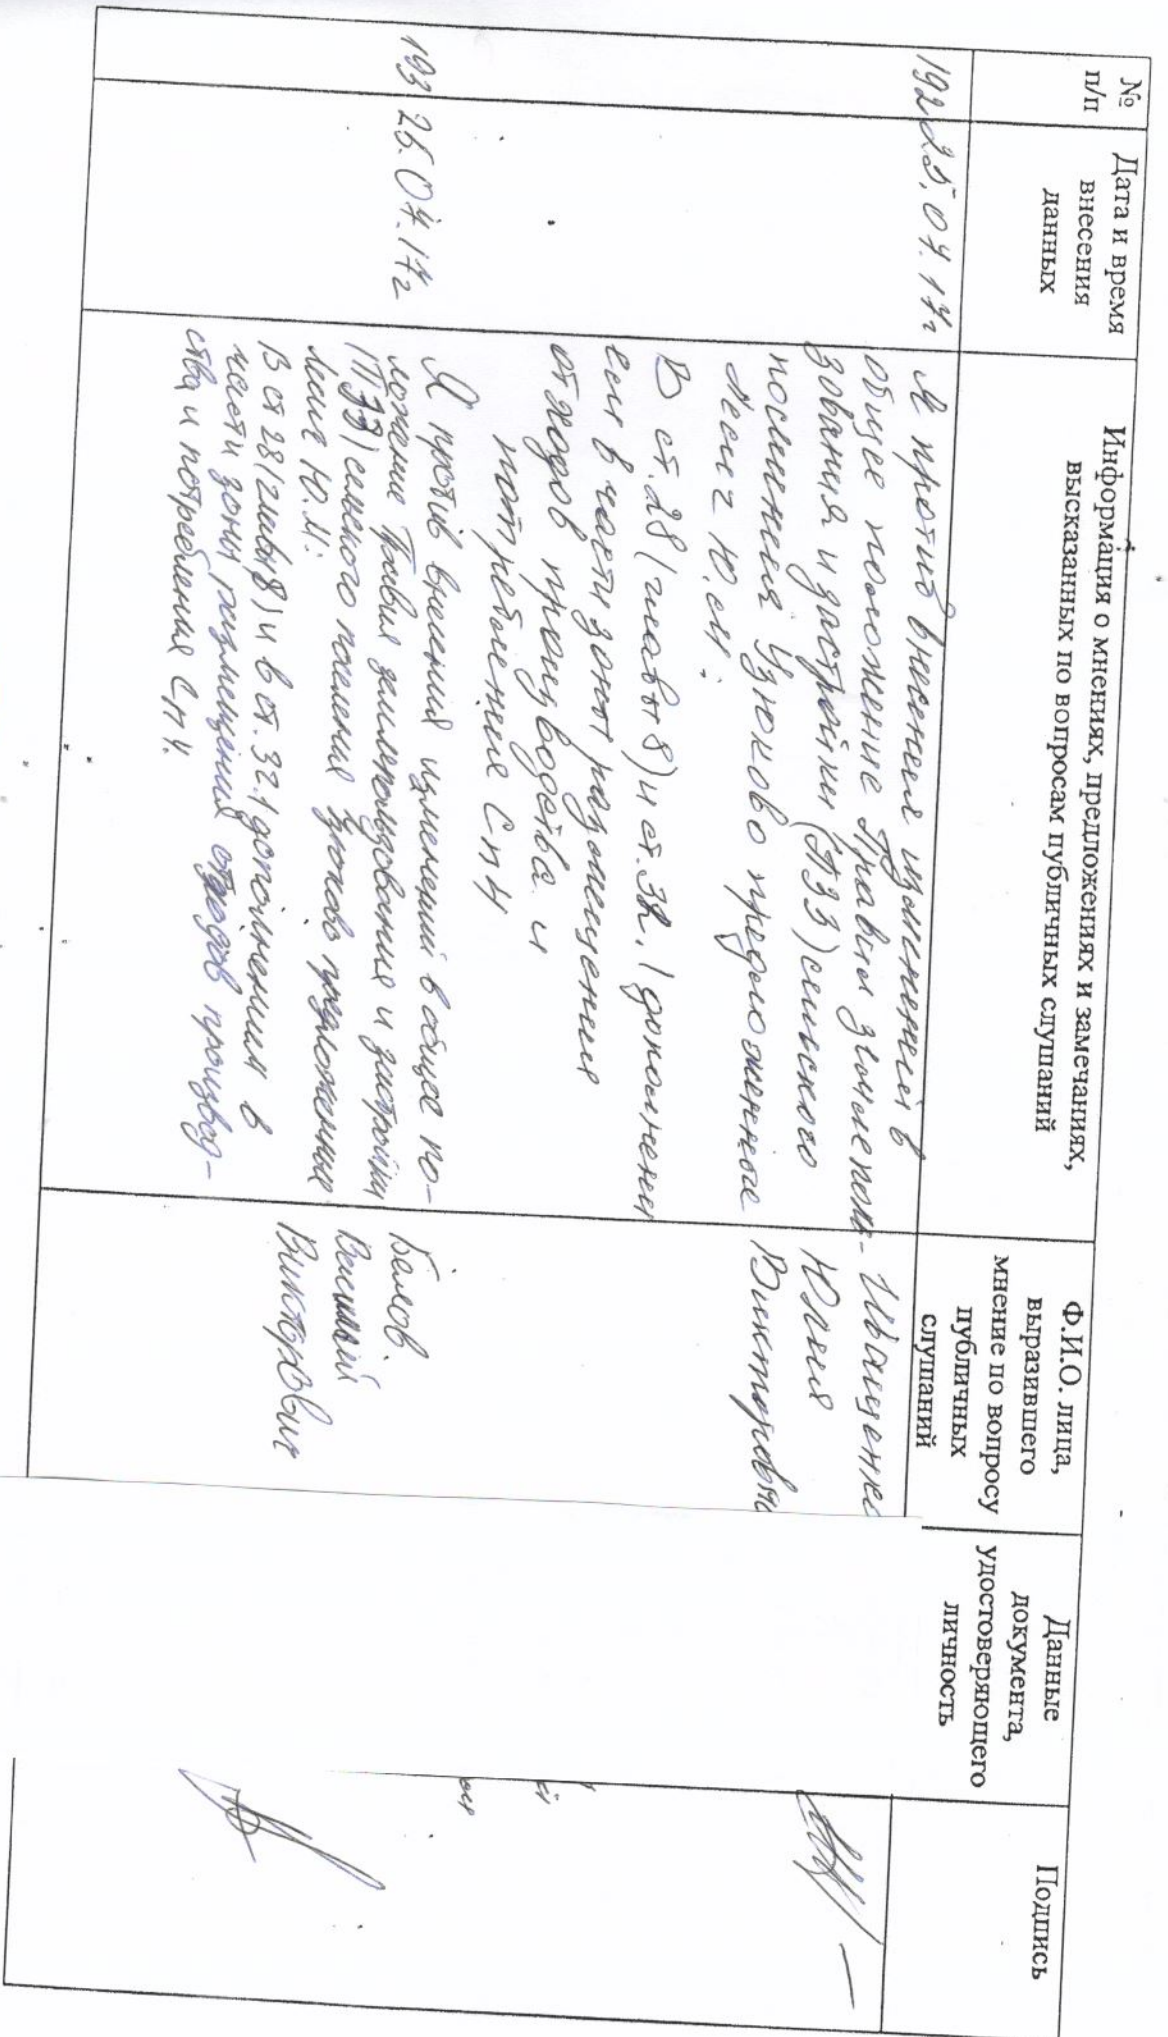 №
п/п
Дата и время
внесения
данных
Информация о мнениях, предложениях и замечаниях,
высказанных по вопросам публичных слушаний
Ф.И.О. лица,
выразившего
мнение по вопросу
публичных
слушаний
Данные
документа,
удостоверяющего
личность
Подпись
192
25.07.17г
Я против внесения изменений в
общее положение Правил землеполь-
зования и застройки (ПЗЗ) сельского
поселения Узюково предложенные
Лесиг Ю.М.
В ст.28 (главы 8) и ст.32.1 дополнени
ем в части зоны размещения
отходов производства и
потребления Сп4
Иващенко
Юлия
Викторовна
193
25.07.17г
Я против внесения изменений в общее по-
ложение Правил землепользования и застройки
(ПЗЗ) сельского поселения Узюково предложенные
Ю.М.
В ст 28 (главы 8) и в ст. 32.1 дополнением в
части зоны размещения отходов производ-
ства и потребления Сп4.
Белов
Василий
Викторович